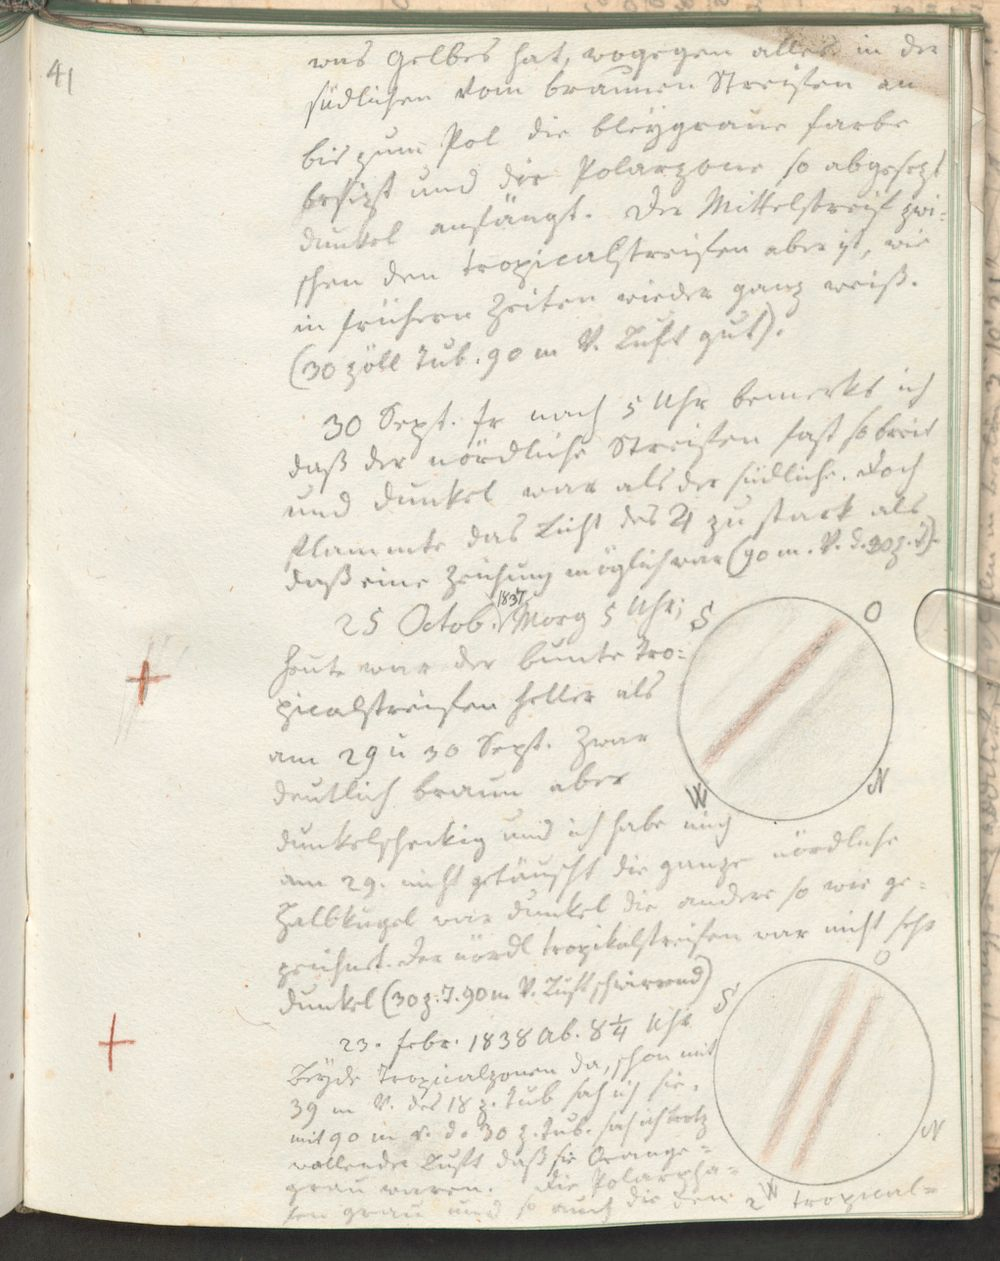 41
was Gelbes hat, wogegen alles in der
südlichen vom braunen Streifen an
bis zum Pol die bleygraue Farbe
besizt und die Polarzone so abgesezt
dunkel anfängt. Der Mittelstreif zwi-
schen den Tropicalstreifen aber ist, wie
in frühern Zeiten wieder ganz weiß.
(30 zöll Tub. 90 m V. Luft gut).
30 Sept. fr nach 5 Uhr bemerkt ich
daß der nördliche Streifen fast so breit
und dunkel war als der südliche. Doch
flammte das Licht des ♃ zu stark als
daß eine Zeichung möglich war (90 m. V. d. 30 z. T).
25 Octob. 1837 Morg 5 Uhr;
heute war der bunte Tro-
picalstreifen heller als
am 29 u 30 Sept. Zwar
deutlich braun aber
dunkelscheckig und ich habe mich
am 29. nicht getäuscht die ganze nördliche
Halbkugel war dunkel die andere so wie ge-
zeichnet. Der nördl tropikalstreifen war nicht sehr
dunkel (30 z. T. 90 m V. Luft schwirrend)
S O
W N
23. Febr. 1838 Ab. 8 1/4 Uhr
Beyde Tropicalzonen da, schon mit
39 m V. des 18 z. Tub sah ich sie.
mit 90 m v. d. 30 z. Tub. sah ich trotz
wallender Luft daß sie Orange-
grau waren. Die Polar
grau und so auch die den 2 tropical-
S O
W N